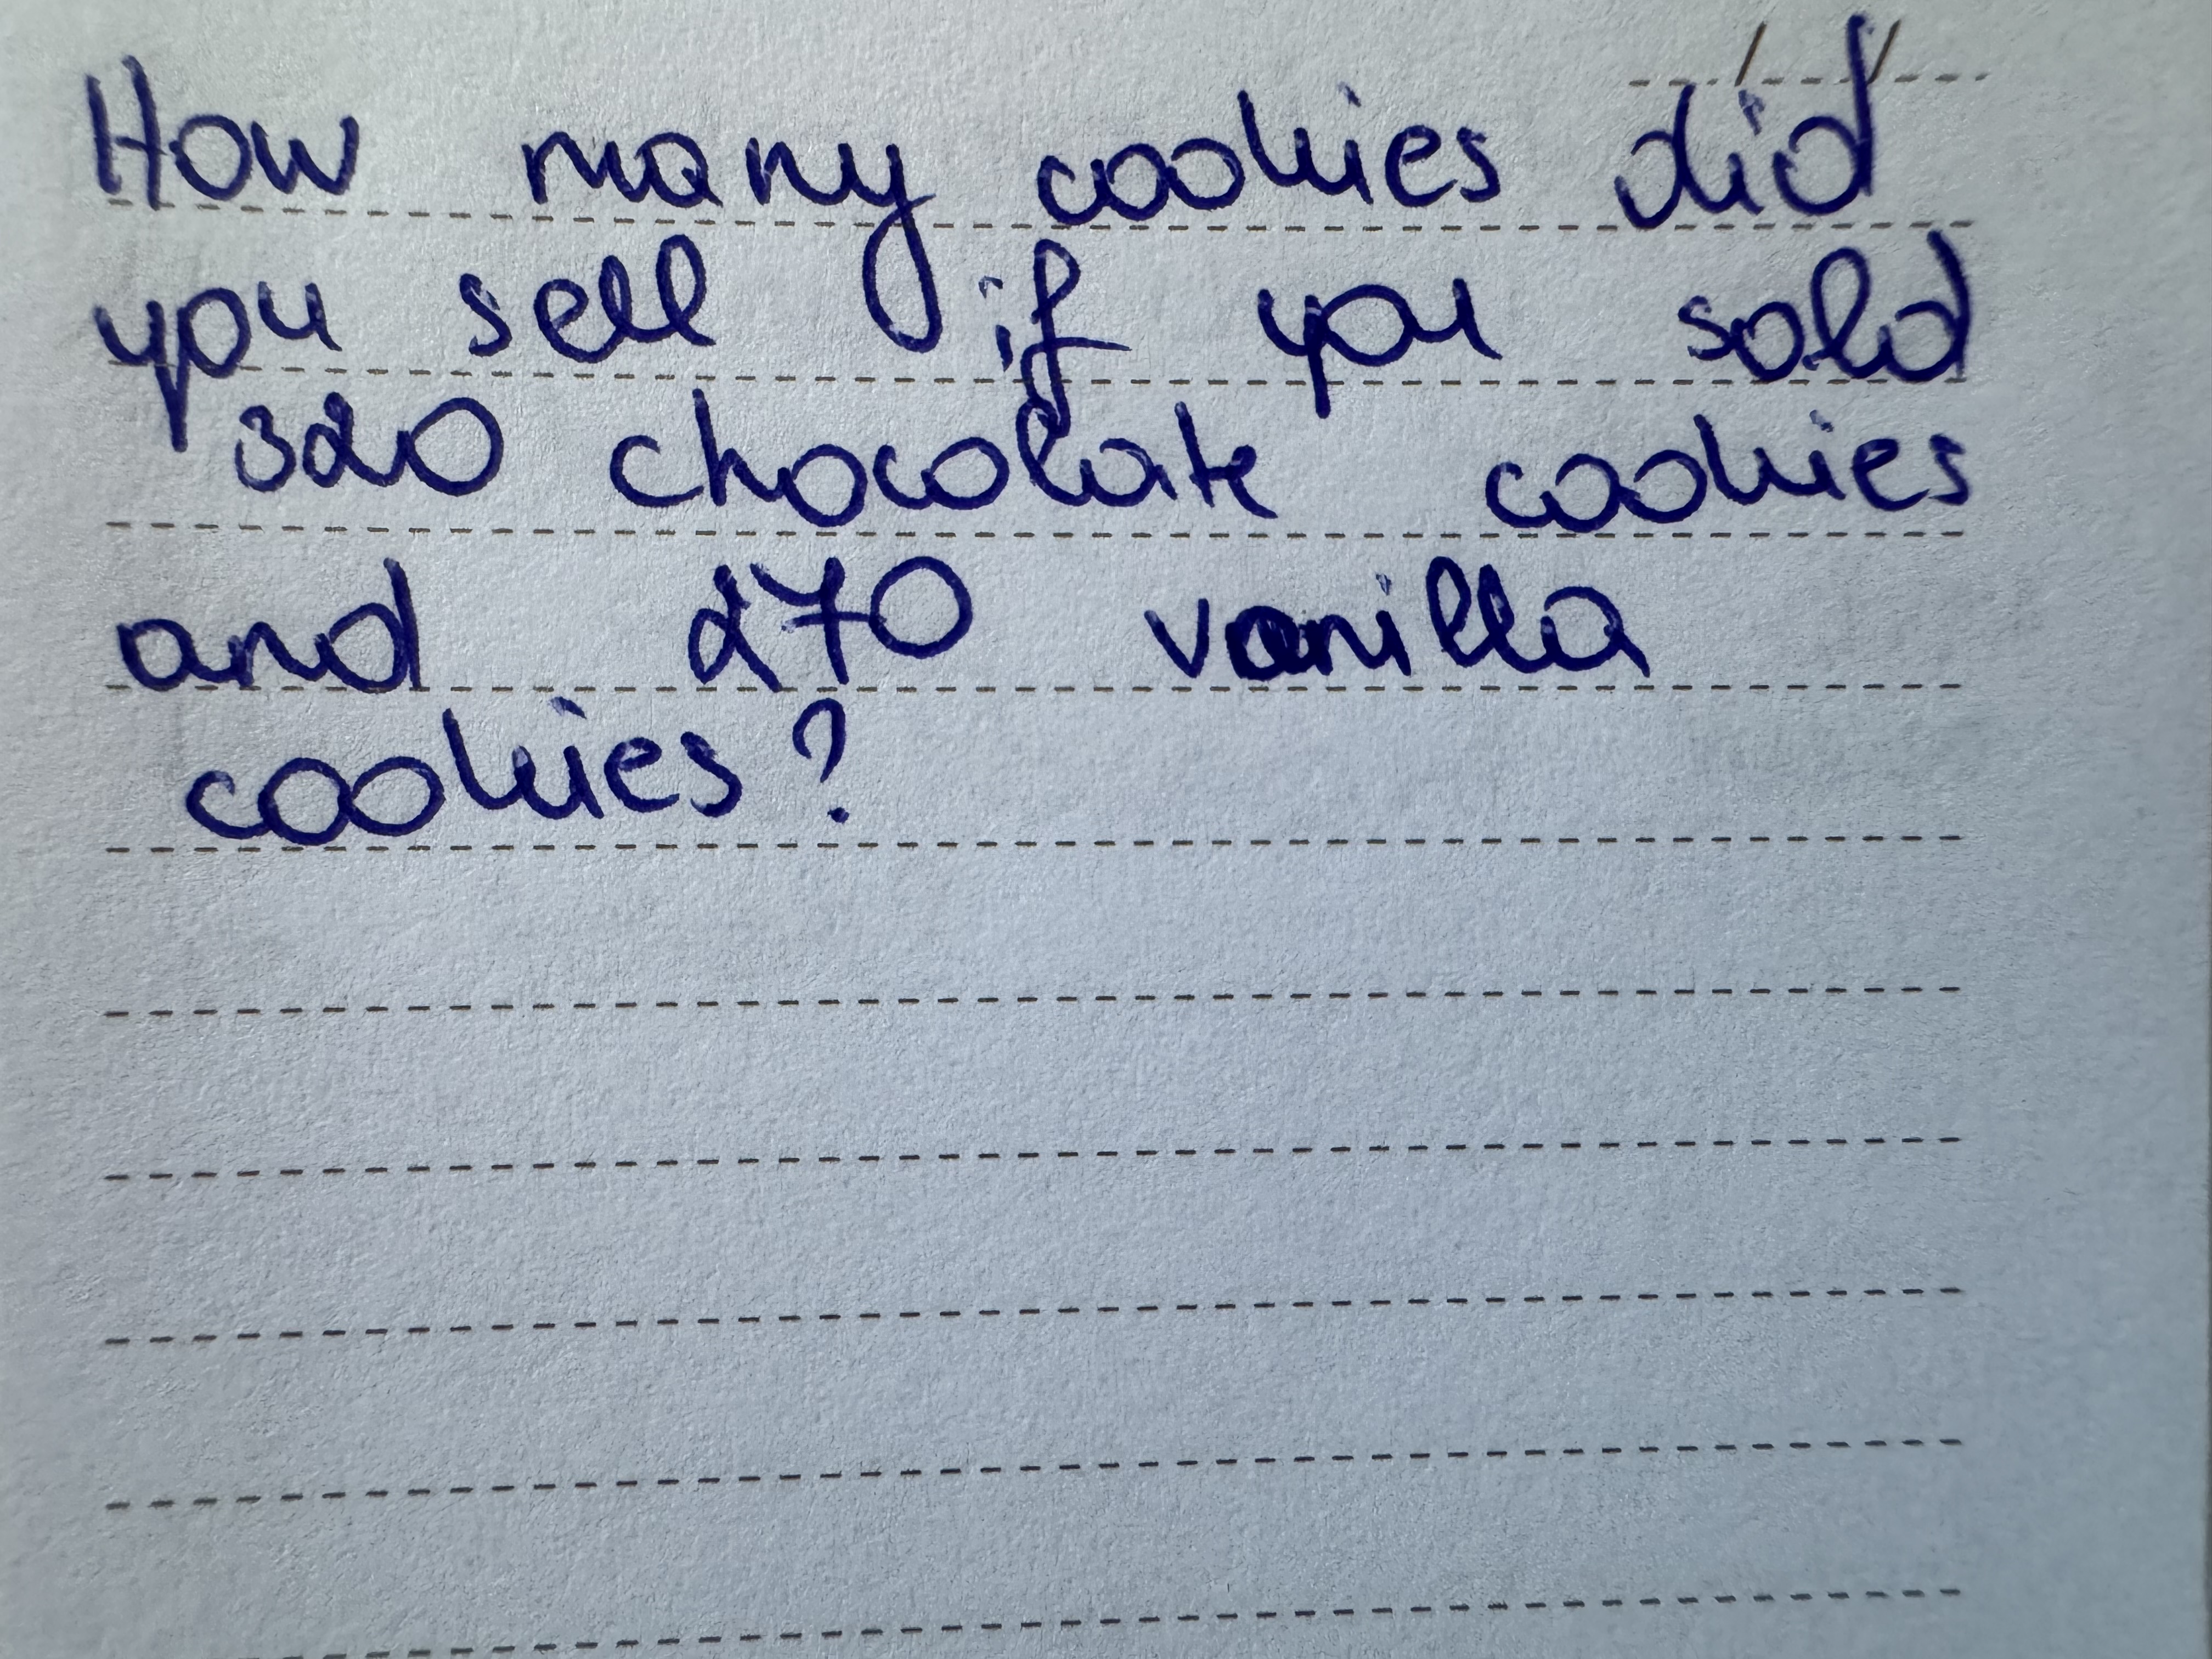 How many cookies did
you sell if you sold
320 chocolate cookies
and 270 vanilla
cookies?